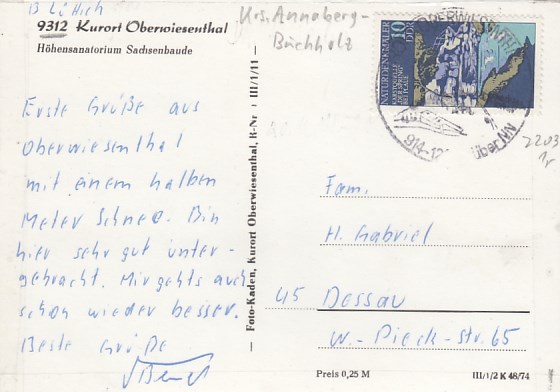 9312 Kurort Oberwiesenthal
Höhensanatorium Sachsenbaude
Krs. Annaberg-
Buchholz
Erste Grüße aus
Oberwiesenthal
mit einem halben
Meter Schnee. Bin
hier sehr gut unter-
gebracht. Mir gehts auch
schon wieder besser.
Beste Grüße
— Foto-Kaden, Kurort Oberwiesenthal, R-Nr : III/1/11 —
NATURDENKMALER
DDR
10
914-
über NN
2203
Fam.
H. Gabriel
45 Dessau
W.-Pieck-Str. 65
Preis 0,25 M
III/1/2 K 48/74